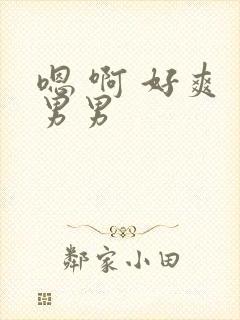 嗯 啊 好爽
男男
鄰家小田